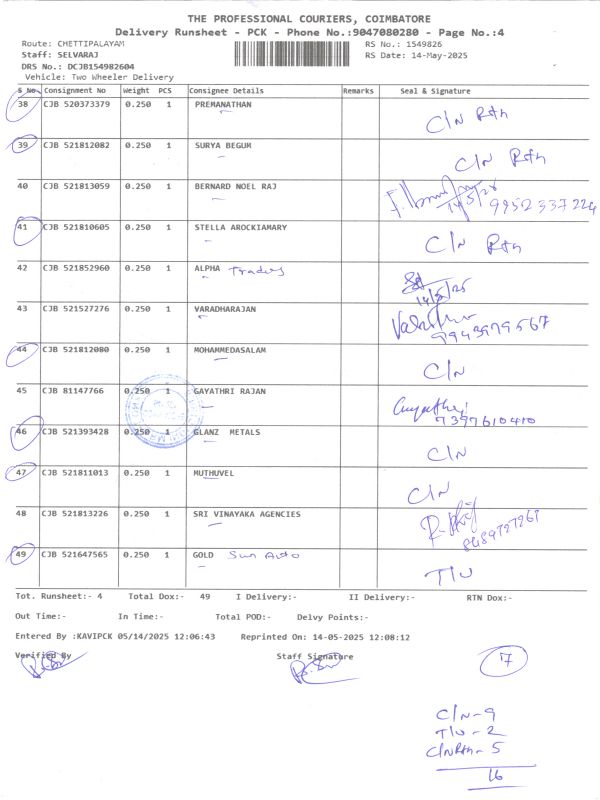 THE PROFESSIONAL COURIERS, COIMBATORE
Delivery Runsheet - PCK - Phone No.:9047080280 - Page No.:4
Route: CHETTIPALAYAM RS No.: 1549826
Staff: SELVARAJ RS Date: 14-May-2025
DRS No.: DCJB154982604
Vehicle: Two Wheeler Delivery
S No Consignment No Weight PCS Consignee Details Remarks Seal & Signature
38 CJB 520373379 0.250 1 PREMANATHAN C/N Rtn
39 CJB 521812082 0.250 1 SURYA BEGUM C/N Rtn
40 CJB 521813059 0.250 1 BERNARD NOEL RAJ 14/5/25 9952337224
41 CJB 521810605 0.250 1 STELLA AROCKIAMARY C/N Rtn
42 CJB 521852960 0.250 1 ALPHA Traders 14/5/25
43 CJB 521527276 0.250 1 VARADHARAJAN 9943979567
44 CJB 521812080 0.250 1 MOHAMMEDASALAM C/N
45 CJB 81147766 0.250 1 GAYATHRI RAJAN Gayathri 7397610410
46 CJB 521393428 0.250 1 GLANZ METALS C/N
47 CJB 521811013 0.250 1 MUTHUVEL C/N
48 CJB 521813226 0.250 1 SRI VINAYAKA AGENCIES 8489727261
49 CJB 521647565 0.250 1 GOLD Sun Auto T/U
Tot. Runsheet:- 4 Total Dox:- 49 I Delivery:- II Delivery:- RTN Dox:-
Out Time:- In Time:- Total POD:- Delvy Points:-
Entered By :KAVIPCK 05/14/2025 12:06:43 Reprinted On: 14-05-2025 12:08:12
Verified By Staff Signature 17
C/N-9
T/U-2
C/N Rtn-5
16